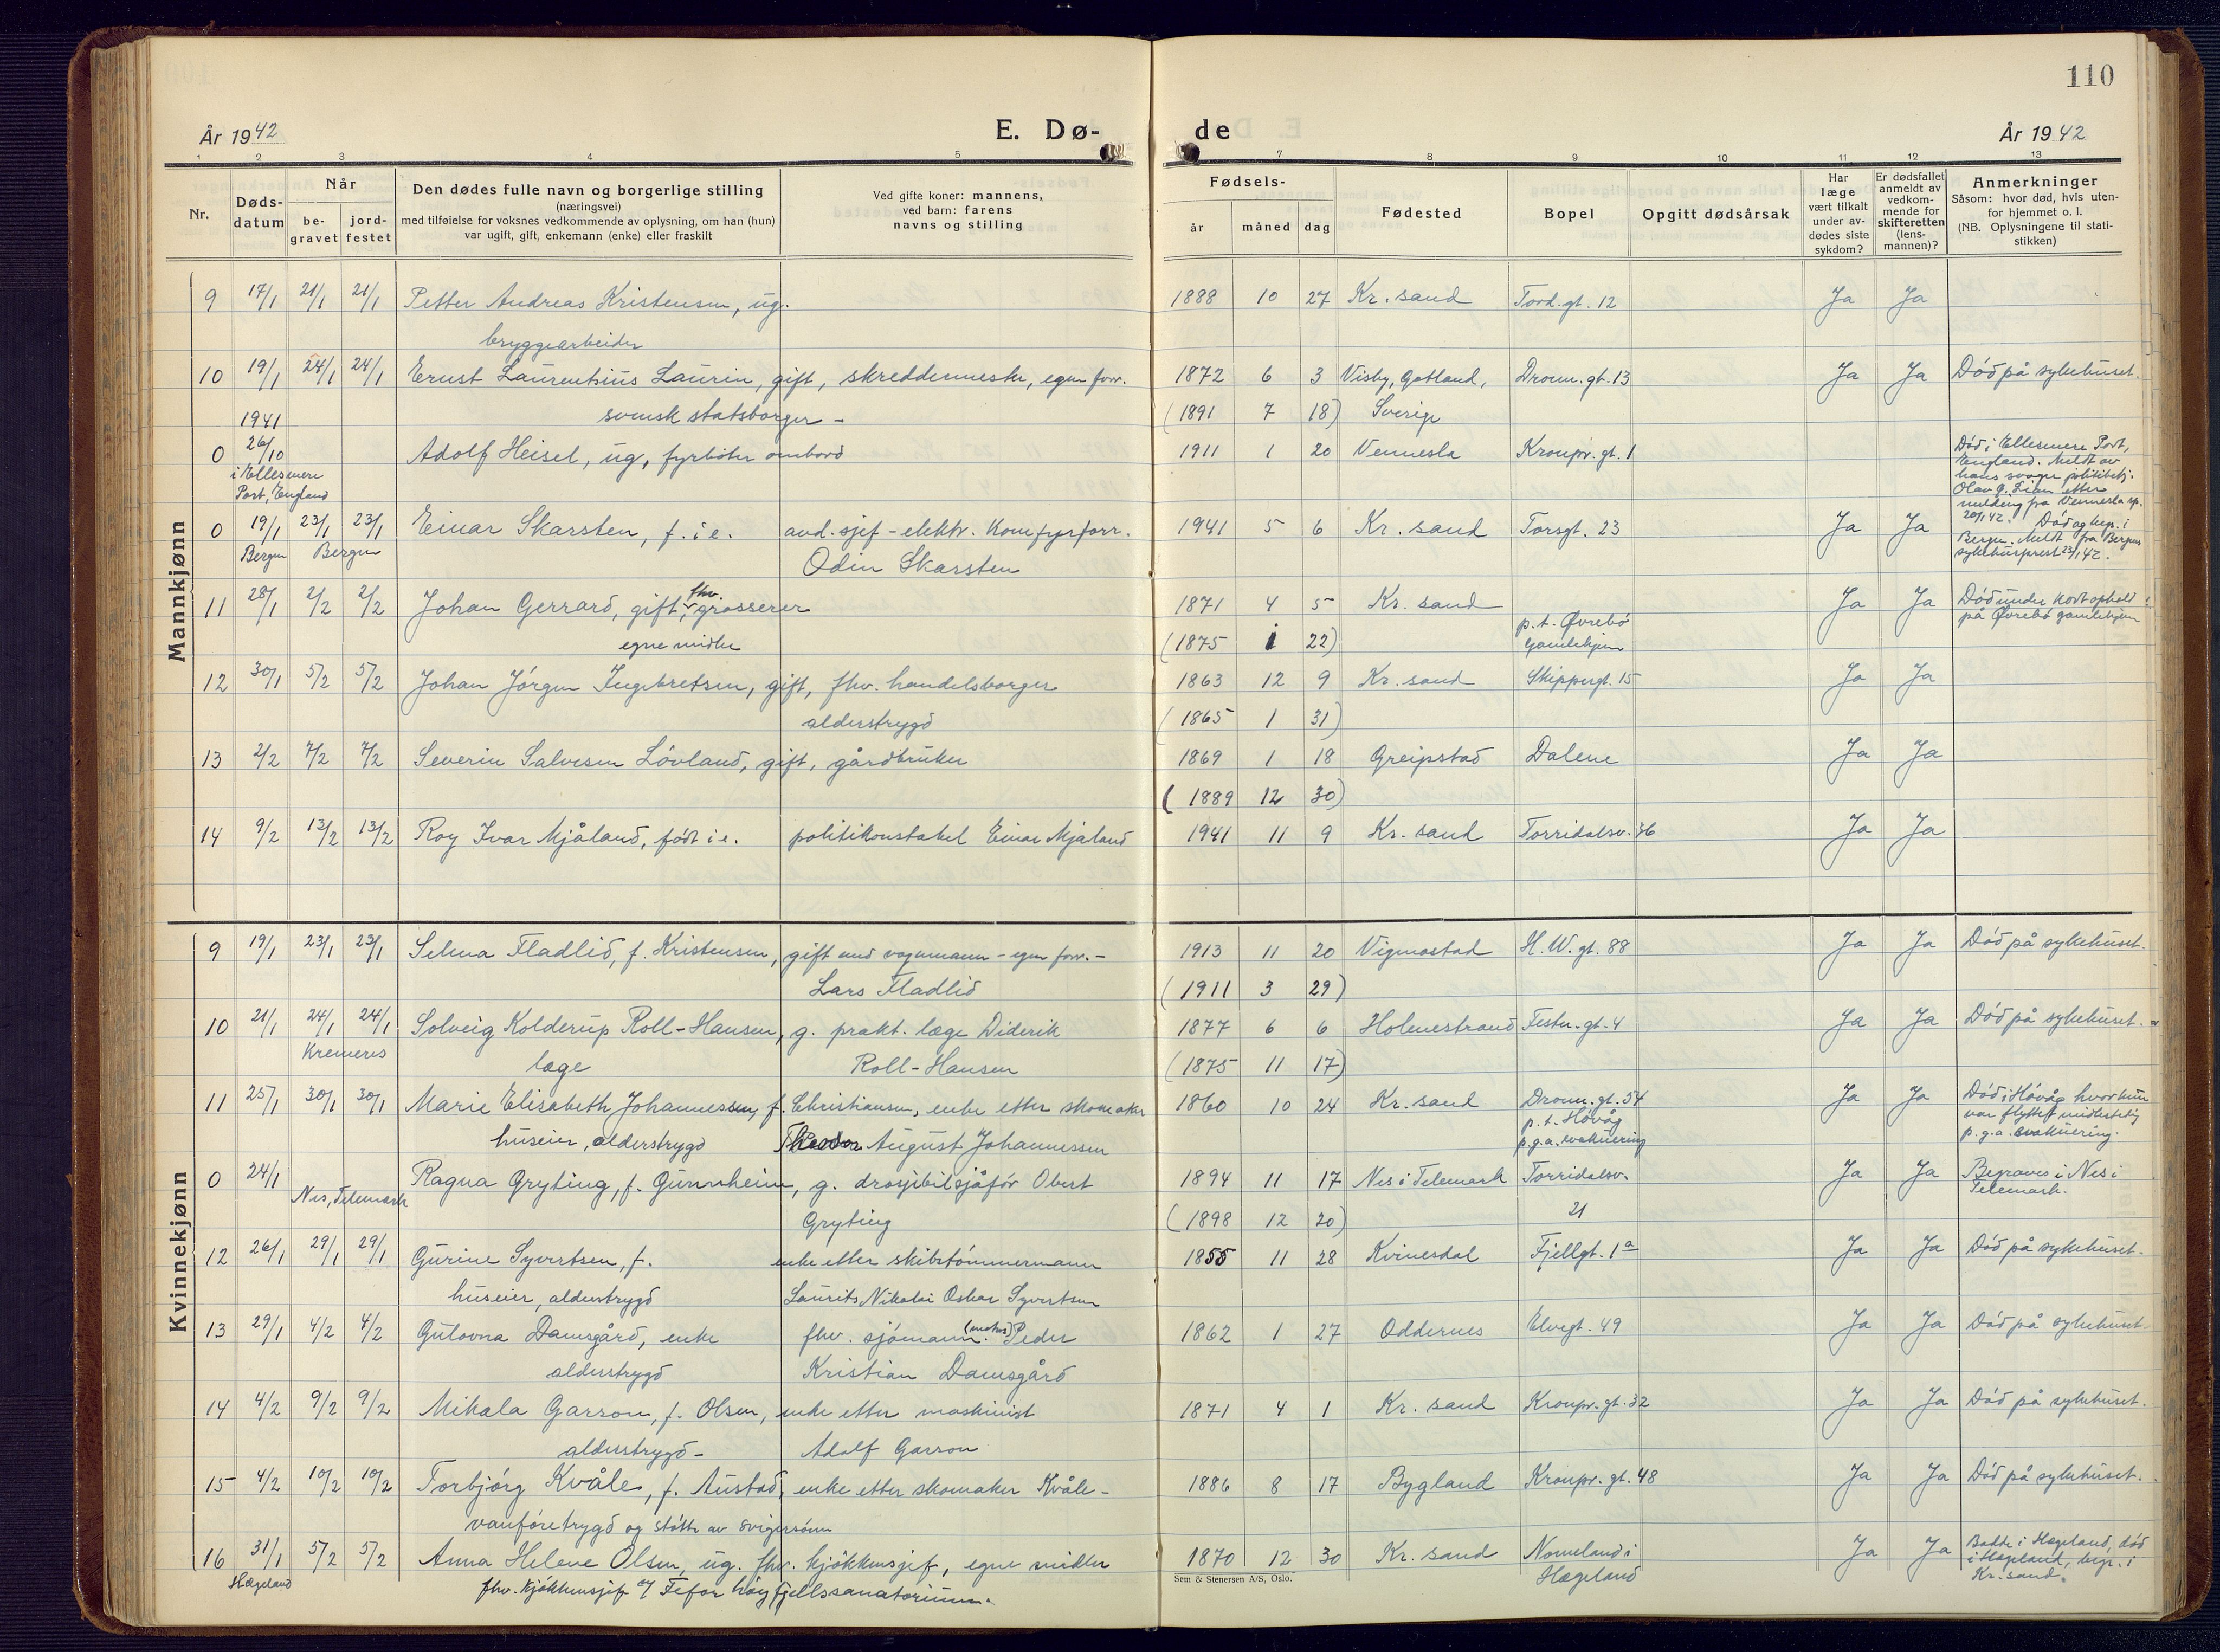 110
År 1942 E. Dø- de År 1942
1 2 3 4 5 7 8 9 10 11 12 13
Nr.
Døds-
datum
Når
be-
gravet
jord-
festet
Den dødes fulle navn og borgerlige stilling
(næringsvei)
med tilføielse for voksnes vedkommende av oplysning, om han (hun)
var ugift, gift, enkemann (enke) eller fraskilt
Ved gifte koner: mannens,
ved barn: farens
navns og stilling
Fødsels-
år måned dag
Fødested
Bopel
Opgitt dødsårsak
Har
læge
vært tilkalt
under av-
dødes siste
sykdom?
Er dødsfallet
anmeldt av
vedkom-
mende for
skifteretten
(lens-
mannen)?
Anmerkninger
Såsom: hvor død, hvis uten-
for hjemmet o. l.
(NB. Oplysningene til stati-
stikken)
Mannkjønn
9 17/1 21/1 21/1 Petter Andreas Kristensen, ug. 1888 10 27 Kr. sand Tord.gt. 12 Ja Ja
bryggearbeider
10 19/1 24/1 24/1 Ernst Laurentsius Laurin, gift, skreddermester, egen forr. 1872 6 3 Visby, Gotland, Dronn.gt. 13 Ja Ja Död på sykehuset.
svensk statsborger - (1891 7 18) Sverige
1941
0 26/10 Adolf Heisel, ug, fyrböter ombord 1911 1 20 Vennesla Kronpr.gt. 1
i Ellesmere
Port, England
Död i Ellesmere Port,
England. Meldt av
hans svoger politibetj.
Olav G. etter
melding fra Vennesla sp.
20/1 42.
0 19/1 23/1 23/1 Einar Skarsten, f. i e. avd. sjef - elektr. Komfyrforr. 1941 5 6 Kr. sand Torsgt. 23 Ja Ja Död og begr. i
Bergen Bergen Odin Skarsten
Bergen. Meldt fra Bergens
sykehusprest 23/1 42.
11 28/1 2/2 2/2 Johan Gerrard, gift, fhv. grosserer 1871 4 5 Kr. sand p.t. Øvrebö Ja Ja Död under kort ophold
egne midler (1875 1 22) gamlehjem på Øvrebö gamlehjem
12 30/1 5/2 5/2 Johan Jörgen Ingebretsen, gift, fhv. handelsborger 1863 12 9 Kr. sand Skippergt. 15 Ja Ja
alderstrygd (1865 1 31)
13 2/2 7/2 7/2 Severin Salvesen Lövland, gift, gårdbruker 1869 1 18 Greipstad Dalene Ja Ja
(1889 12 30)
14 9/2 13/2 13/2 Roy Ivar Mjåland, födt i e. politikonstabel Einar Mjåland 1941 11 9 Kr. sand Torridalsv. 36 Ja Ja
Kvinnekjønn
9 19/1 23/1 23/1 Selma Fladlid, f. Kristensen, gift med vognmann - egen forr. - 1913 11 20 Vigmostad H.W.gt. 88 Ja Ja Död på sykehuset.
Lars Fladlid (1911 3 29)
10 21/1 24/1 24/1 Solveig Kolderup Roll-Hansen, g. prakt. læge Diderik 1877 6 6 Holmestrand Festn.gt. 4 Ja Ja Död på sykehuset.
Kremeres læge Roll-Hansen (1875 11 17)
11 25/1 30/1 30/1 Marie Elisabeth Johannessen, f. Christiansen, enke etter skomaker 1860 10 24 Kr. sand Dronn.gt. 54 Ja Ja Död i Hövåg hvor hun
huseier, alderstrygd Theodor August Johannessen p.t. Hövåg var flyttet midlertidig
p.g.a. evakuering p.g.a. evakuering.
0 24/1 Ragna Gryting, f. Gunnheim, g. drosjebilsjåför Obert 1894 11 17 Nes i Telemark Torridalsv. Ja Ja Begraves i Nes i
Nes, Telemark Gryting (1898 12 20) 21 Telemark.
12 26/1 29/1 29/1 Gurine Syvertsen, f. enke etter skibstömmermann 1855 11 28 Kvinesdal Fjellgt. 1a Ja Ja Död på sykehuset.
huseier, alderstrygd Laurits Nikolai Oskar Syvertsen
13 29/1 4/2 4/2 Gulovna Damsgård, enke fhv. sjömann (matros) Peder 1862 1 27 Oddernes Elvegt. 49 Ja Ja Död på sykehuset
alderstrygd Kristian Damsgård
14 4/2 9/2 9/2 Mikala Garson, f. Olsen, enke etter maskinist 1871 4 1 Kr. sand Kronpr.gt. 32 Ja Ja Död på sykehuset.
alderstrygd - Adolf Garson
15 4/2 10/2 10/2 Torbjörg Kvåle, f. Austad, enke etter skomaker Kvåle - 1886 8 17 Bygland Kronpr.gt. 48 Ja Ja Död på sykehuset.
vanföretrygd og stötte av svigersönn
16 31/1 5/2 5/2 Anna Helene Olsen, ug. fhv. kjökkensjef, egne midler 1870 12 30 Kr. sand Nomeland i Ja Ja Bodde i Hægeland, död
Hægeland fhv. kjökkensjef på Fefor höyfjellssanatorium. Hægeland i Hægeland, begr. i
Kr. sand.
Sem & Stenersen A/S, Oslo.